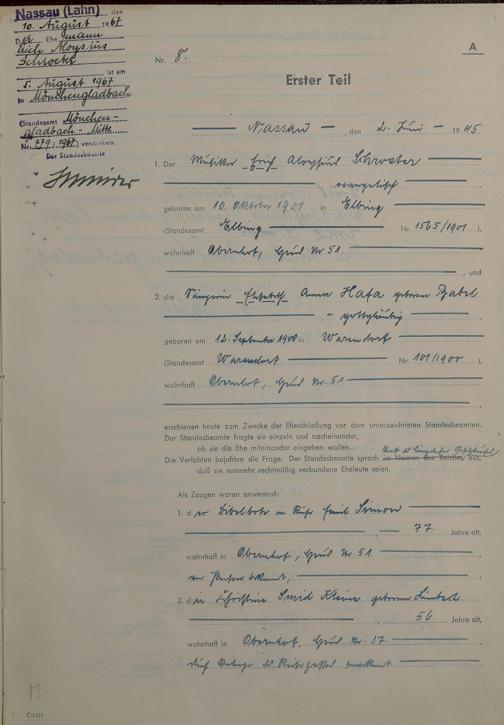 Nassau (Lahn), den
10. August 1967
Der Ehemann
Erich Aloysius
Schroeter
ist am
5. August 1967
in Mönchengladbach
(Standesamt Mönchen-
gladbach - Mitte
Nr. 779/1967) verstorben.
Der Standesbeamte
A
Nr. 8.
Erster Teil
Nassau, den 2. Juni 1945
1. Der Musiker Erich Aloysius Schroeter
evangelisch
geboren am 10. Oktober 1901 in Elbing
(Standesamt Elbing Nr. 1565/1901),
wohnhaft Obernhof, Haus Nr. 51
, und
2. die Sängerin Elisabeth Anna Hafa geborene
gottgläubig
geboren am 12. September 1900 in Warendorf
(Standesamt Warendorf Nr. 101/1900),
wohnhaft Obernhof, Haus Nr. 51
erschienen heute zum Zwecke der Eheschließung vor dem unterzeichneten Standesbeamten.
Der Standesbeamte fragte sie einzeln und nacheinander,
ob sie die Ehe miteinander eingehen wollen.
Die Verlobten bejahten die Frage. Der Standesbeamte sprach im Namen des Reiches aus,
daß sie nunmehr rechtmäßig verbundene Eheleute seien.
Als Zeugen waren anwesend:
1. der in Ruhe Emil Simon
77 Jahre alt,
wohnhaft in Obernhof, Haus Nr. 51
von Person bekannt,
2. die Ehefrau Klein geborene
56 Jahre alt,
wohnhaft in Obernhof, Haus Nr. 37
M